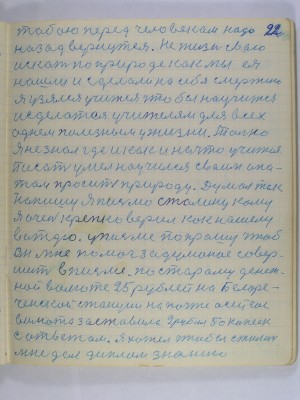 22
тобою перед человекам надо
назад вернутся. Не жизни свого
искат по природе как мы ея
нашли и сделали на себя смертию
Я узялся учится чтобы научится
и сделатся учителям для всех
однем полезным у жизни. Только
я не знал где и как и на что учится
писать умел научился своим опы-
том просить природу. Думал так
напишу я письмо сталину кому
я очен крепко верил как нашему
вождю. у письме попрошу чтоб
он мне помог задуманое совер-
шить в письме. по старому денеж-
ной валюте 25 рублей на Белоре-
ченской станции на почте
валюта заставила 3 рубля 50 копеек
с ответам. Я хотел чтобы сталин
мне дал диплом знание